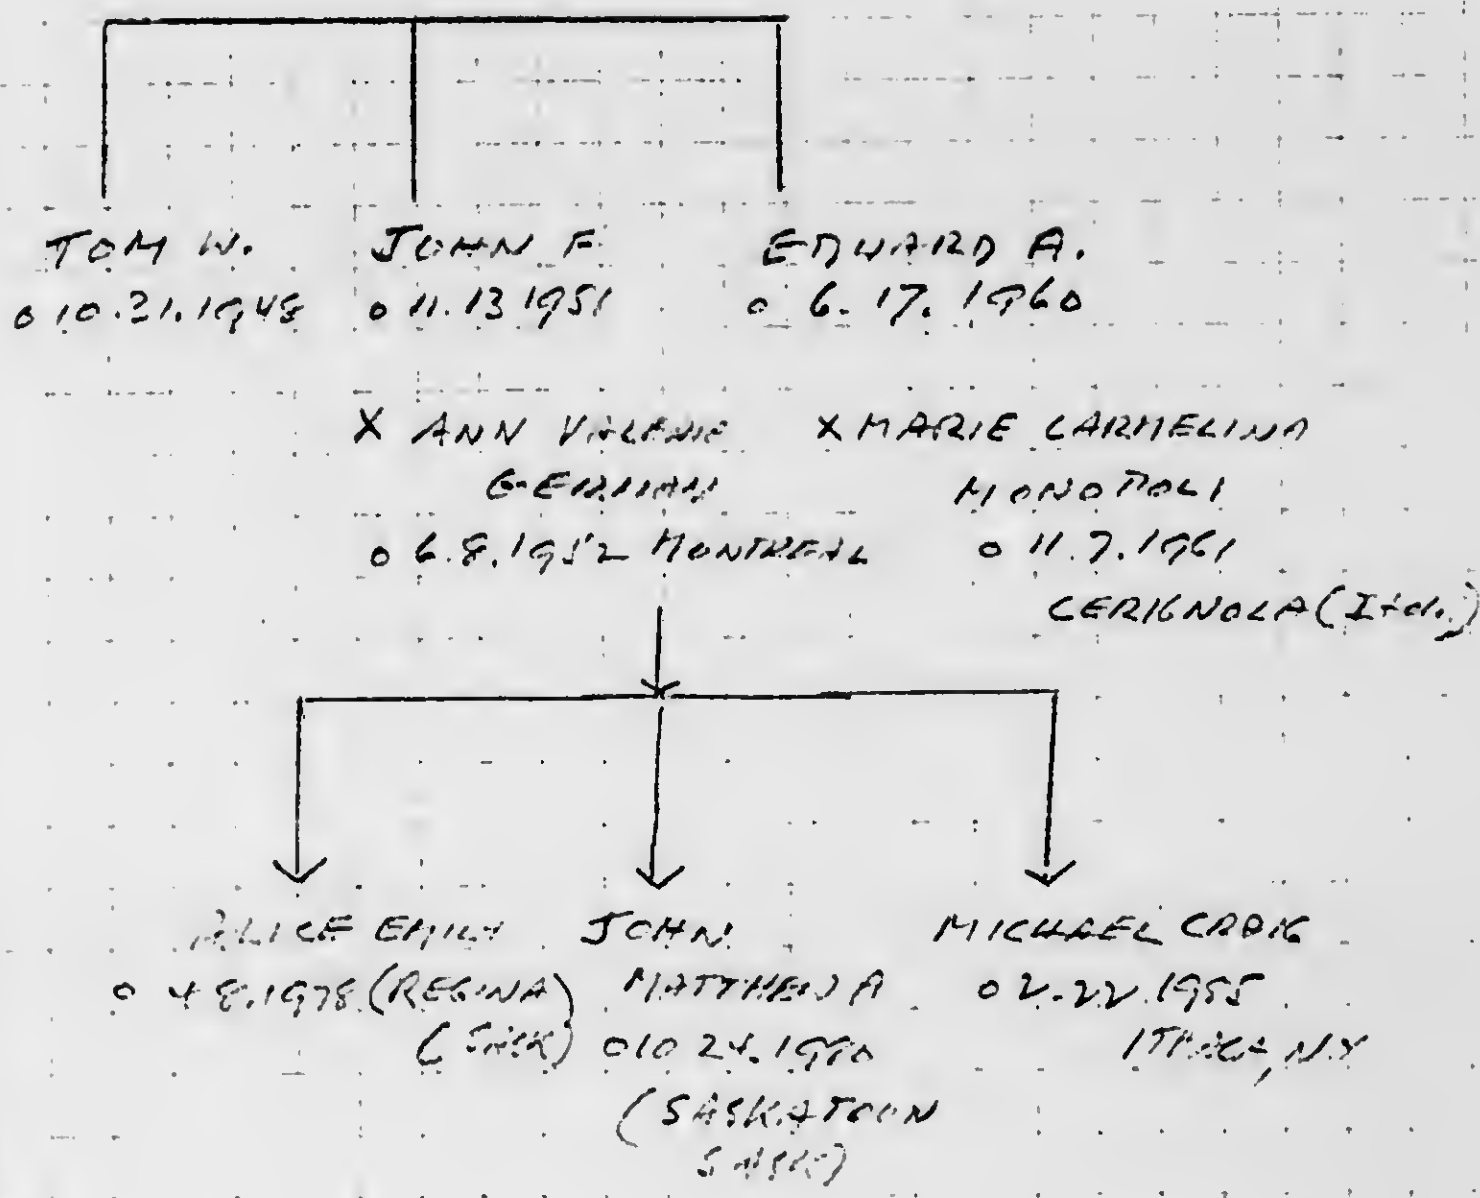 TOM W.
o 10.31.1948
JOHN F.
o 11.13 1951
EDWARD A.
o 6.17.1960
X ANN VALERIE
GERMAN
o 6.8.1952 MONTREAL
X MARIE CARMELINA
MONOPOLI
o 11.7.1961
CERIGNOLA (Ital.)
ALICE EMILY
o 4 8.1978 (REGINA)
(SASK)
JOHN
MATTHEW A
o 10 24.1980
(SASKATOON
SASK)
MICHAEL CRAIG
o 2.22.1985
ITHACA, N.Y